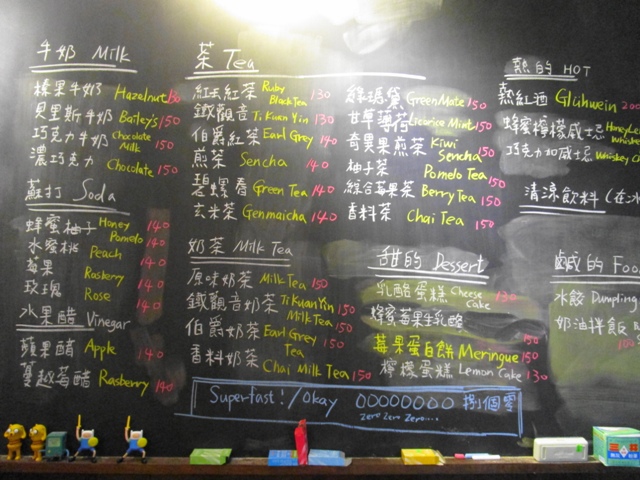 牛奶 Milk
榛果牛奶 Hazelnut 130
貝里斯牛奶 Bailey's 150
巧克力牛奶 Chocolate Milk 150
濃巧克力 Chocolate 150
蘇打 Soda
蜂蜜柚子 Honey Pomelo 140
水蜜桃 Peach 140
莓果 Rasberry 140
玫瑰 Rose 140
水果醋 Vinegar
蘋果醋 Apple 140
蔓越莓醋 Rasberry 140
茶 Tea
紅玉紅茶 Ruby Black Tea 130
鐵觀音 Ti Kuan Yin 130
伯爵紅茶 Earl Grey 140
煎茶 Sencha 140
碧螺春 Green Tea 140
玄米茶 Genmaicha 140
綠瑪黛 Green Mate 150
甘草薄荷 Licorice Mint 150
奇異果煎茶 Kiwi Sencha 150
柚子茶 Pomelo Tea 150
綜合莓果茶 Berry Tea 150
香料茶 Chai Tea 150
奶茶 Milk Tea
原味奶茶 Milk Tea 150
鐵觀音奶茶 Ti Kuan Yin Milk Tea 150
伯爵奶茶 Earl Grey Tea 150
香料奶茶 Chai Milk Tea 150
甜的 Dessert
乳酪蛋糕 Cheese Cake 130
蜂蜜莓果生乳酪
莓果蛋白餅 Meringue 150
150
檸檬蛋糕 Lemon Cake 130
熱的 HOT
熱紅酒 Glühwein 200
蜂蜜檸檬威士忌 Honey Le Whiskey
巧克力加威士忌 Whiskey C
清涼飲料 (在冰
鹹的 Foo
水餃 Dumpling
奶油拌飯
100
Super-fast! / Okay 00000000 捌個零
Zero Zero Zero...